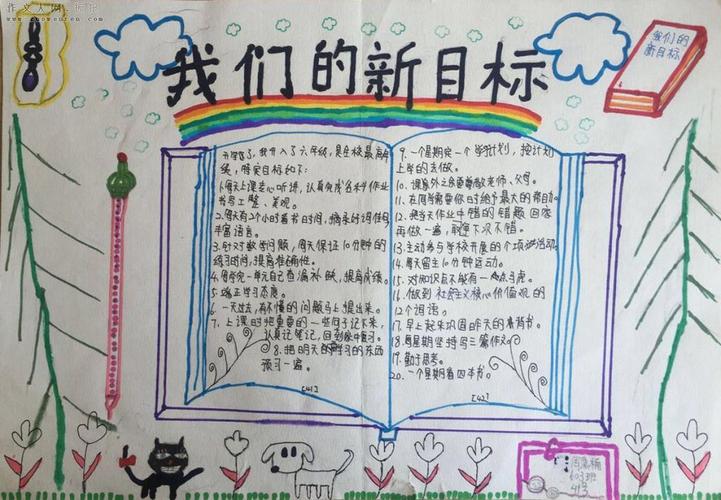 作文人网
我们的新目标
我们的
新目标
开学了,我升入了六年级,是在校最高年
级,特定目标如下:
1.每天上课专心听讲,认真完成各科作业
书写工整、美观。
2.每天有2个小时看书时间,摘录好词佳句
丰富语言。
3.针对数学问题,每天保证10分钟的
练习时间,提高准确性。
4.每学完一单元自己查漏补缺,提高成绩。
5.端正学习态度。
6.一天过去,有不懂的问题马上提出来。
7.上课时把重要的一些句子记下来,
认真记笔记,回到家中复习。
8.把明天的要学习的东西
预习一遍。
[41]
9.一个星期定一个学习计划,按计划
上学的去做。
10.课堂外之余要尊敬老师、父母。
11.在同学需要你时给予最大的帮助。
12.把当天作业中错的错题回家
再做一遍,下次不错。
13.主动参与学校开展的个项活动。
14.每天留主10分钟运动。
15.对知识点不能有一点马虎。
16.做到社会主义核心价值观的
12个词语。
17.早上起来巩固昨天的背书。
18.每星期坚持写三篇作文。
19.勤于思考。
20.一个星期看四本书。
[42]
603班